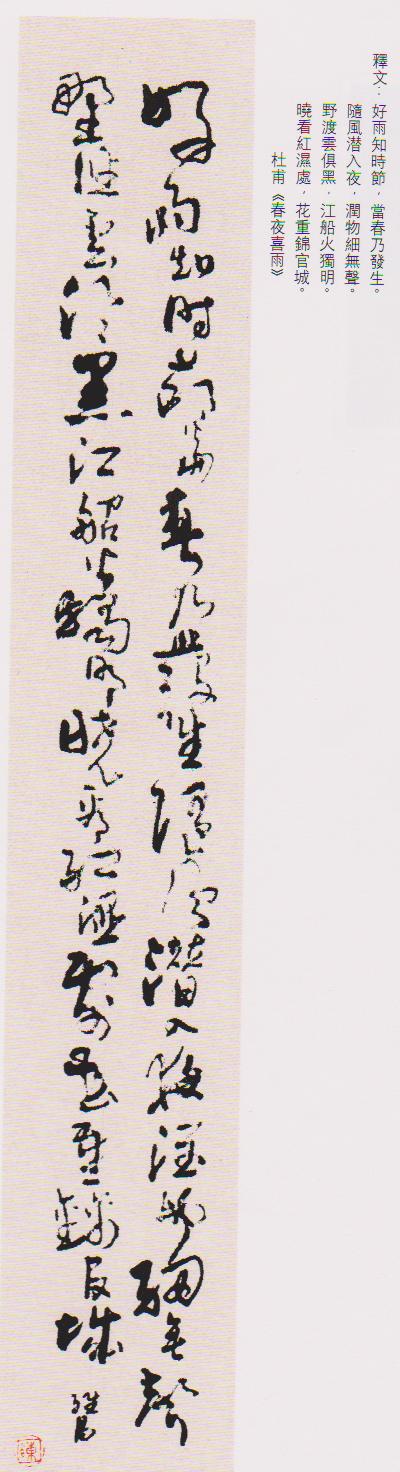 釋文：好雨知時節，當春乃發生。
隨風潜入夜，潤物細無聲。
野渡雲俱黑，江船火獨明。
曉看紅濕處，花重錦官城。
杜甫《春夜喜雨》
好雨知时節當春乃發生隨風潜入夜潤物細無聲
野渡雲俱黑江船火獨明曉看紅濕處花重錦官城